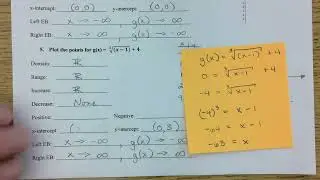 x-intercept: (0,0) y-intercept: (0,0)
Left EB: x → -∞ g(x) → ∞
Right EB: x → ∞ g(x) → ∞
8. Plot the points for g(x) = ∛(x-1) + 4
Domain: ℝ
Range: ℝ
Increase: ℝ
Decrease: None
Positive: Negative:
x-intercept: ( y-intercept: (0,3)
Left EB: x → -∞ g(x) → -∞
Right EB: x → ∞ g(x) → ∞
g(x) = ∛(x-1) + 4
0 = ∛x-1 + 4
-4 = ∛x-1
(-4)³ = x - 1
-64 = x - 1
-63 = x